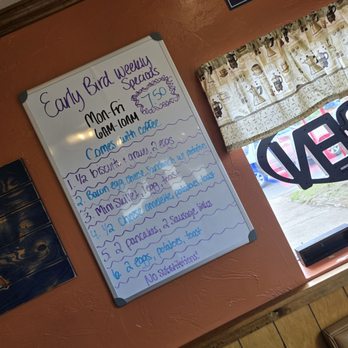 Early Bird Weekly
Specials
7.50
Mon-Fri
6AM-10AM
Comes with coffee
1. 1/2 biscuit & gravy, 2 eggs
2 Bacon egg cheese Sandwich w/ potatoes
3 Mini Skillet, 1 egg, toast
1/2 Cheese omelette, potatoes, toast
5. 2 pancakes, 2 Sausage links
6 2 eggs, potatoes, toast
No Substitutions!